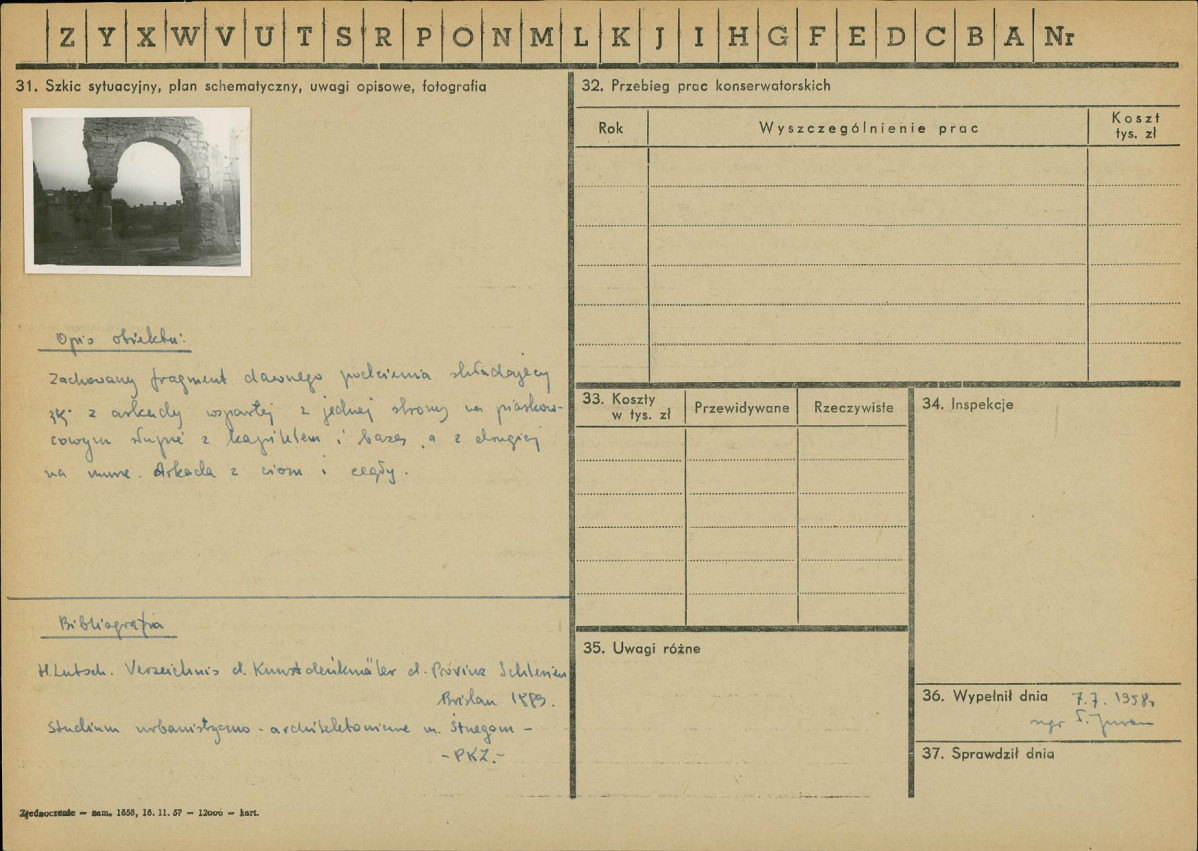 Z Y X W V U T S R P O N M L K J I H G F E D C B A Nr
31. Szkic sytuacyjny, plan schematyczny, uwagi opisowe, fotografia
Opis obiektu:
Zachowany fragment dawnego podcienia składający
się z arkady wspartej z jednej strony na piasko-
cowym słupie z kapitelem i bazą, a z drugiej
na murze. Arkada z cios i cegły.
Bibliografia
H. Lutsch. Verzeichnis d. Kunstdenkmäler d. Provinz Schlesien
Breslau 1889.
Studium urbanistyczno-architektoniczne m. Strzegom -
- PKZ. -
Zjednoczenie — zam. 1858, 18. 11. 57 — 12000 — kart.
32. Przebieg prac konserwatorskich
Rok
Wyszczególnienie prac
Koszt
tys. zł
33. Koszty
w tys. zł
Przewidywane
Rzeczywiste
34. Inspekcje
35. Uwagi różne
36. Wypełnił dnia 7.7.1958r
mgr
37. Sprawdził dnia